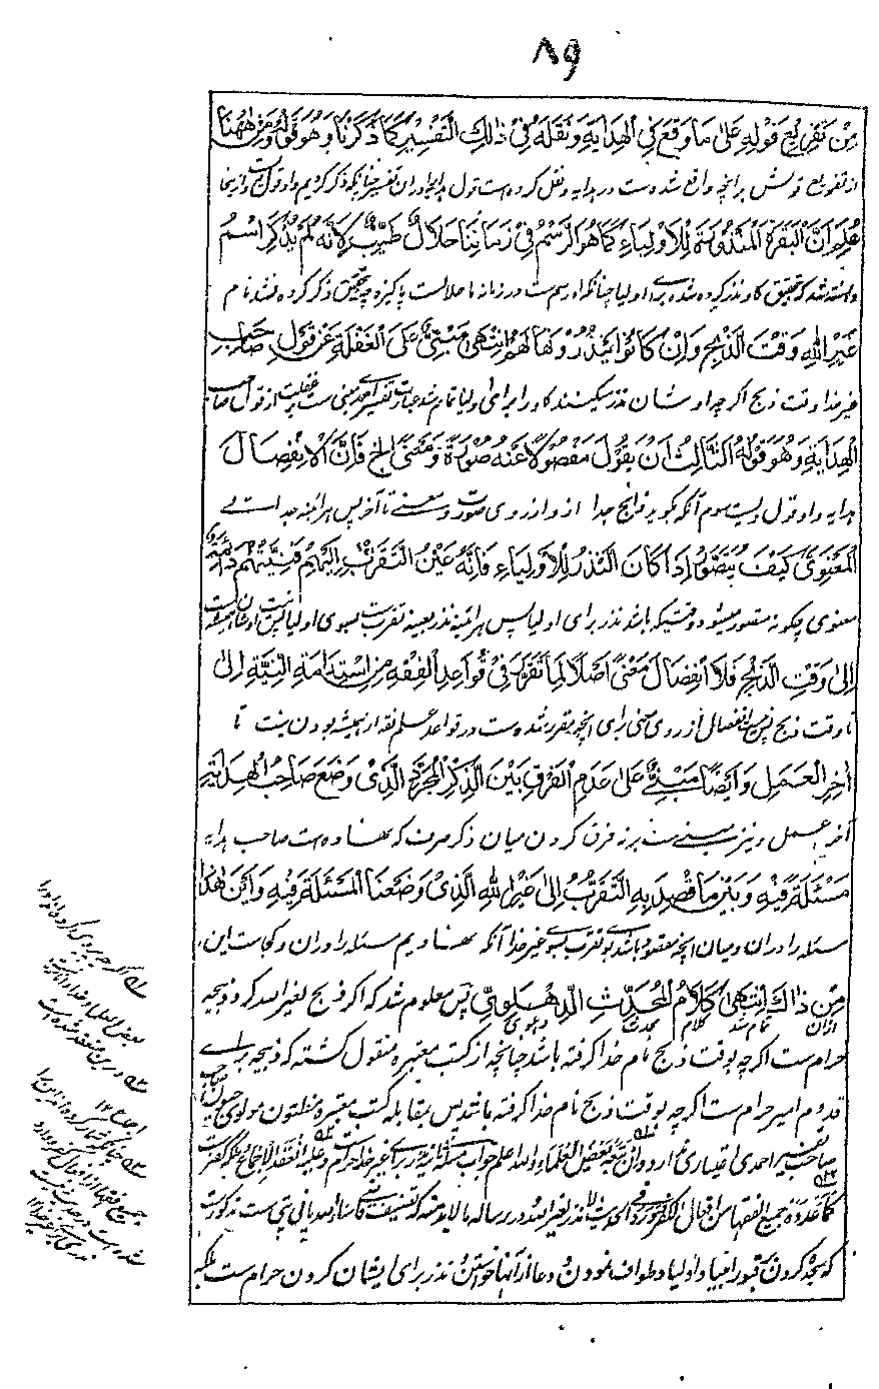 ۸۹
مِنْ تَفْرِيْعِ قَوْلِهِ عَلٰى مَا وَقَعَ فِي الْهِدَايَةِ وَنَقَلَهُ فِيْ ذٰلِكَ التَّفْسِيْرِ كَمَا ذَكَرْنَا وَهُوَ قَوْلُهُ وَمِنْ هٰهُنَا
از تفریع قولش برانچه واقع شده است در هدایه و نقل کرده است قول هدایه را دران تفسیر چنانکه ذکر کردیم و او قول اوست و ازینجا
عُلِمَ اَنَّ الْبَقَرَةَ الْمَنْذُوْرَةَ لِلْاَوْلِيَاءِ كَمَا هُوَ الرَّسْمُ فِيْ زَمَانِنَا حَلَالٌ طَيِّبٌ لِاَنَّهُ لَمْ يُذْكَرِ اسْمُ
دانسته شد که تحقیق گاو نذر کرده شده برای اولیا چنانکه او رسم ست در زمانه ما حلالست پاکیزه چه تحقیق ذکر کرده نشد نام
غَيْرِ اللهِ وَقْتَ الذَّبْحِ وَاِنْ كَانُوْا يَنْذُرُوْنَهَا لَهُمْ اِنْتَهٰى مَبْنِيٌّ عَلَى الْغَفْلَةِ عَنْ قَوْلِ صَاحِبِ
غیر خدا وقت ذبح اگرچه اوشان نذر میکنند گاو را برای اولیا تمام شد عبارت تفسیر احمدی مبنی ست بر غفلت از قول صاحب
الْهِدَايَةِ وَهُوَ قَوْلُهُ الثَّالِثُ اَنْ يَقُوْلَ مَفْصُوْلًا عَنْهُ صُوْرَةً وَمَعْنًى الخ فَاِنَّ الْاِنْفِصَالَ
هدایه و او قول اوست سوم آنکه بگوید ذابح جدا ازو از روی صورت و معنے تا آخر پس هر آئینه جدائی
الْمَعْنَوِيَّ كَيْفَ يُتَصَوَّرُ اِذَا كَانَ النَّذْرُ لِلْاَوْلِيَاءِ فَاِنَّهُ عَيْنُ التَّقَرُّبِ اِلَيْهِمْ فَنِيَّتُهُمْ دَائِمَةٌ
معنوی چگونه متصور میشود وقتیکه باشد نذر برای اولیا پس هر آئینه نذر بعینه تقرب ست بسوی اولیا پس نیت اوشان همیشه است
اِلٰى وَقْتِ الذَّبْحِ فَلَا اِنْفِصَالَ مَعْنًى اَصْلًا لِمَا تَقَرَّرَ فِيْ قَوَاعِدِ الْفِقْهِ مِنْ اِسْتِدَامَةِ النِّيَّةِ اِلٰى
تا وقت ذبح پس نیست انفصال از روی معنی برای انچه مقرر شده است در قواعد علم فقه از همیشه بودن نیت تا
اٰخِرِ الْعَمَلِ وَاَيْضًا مَبْنِيٌّ عَلٰى عَدَمِ الْفَرْقِ بَيْنَ الذِّكْرِ الْمُجَرَّدِ الَّذِيْ وَضَعَ صَاحِبُ الْهِدَايَةِ
آخر عمل و نیز مبنے ست بر نه فرق کردن میان ذکر صرف که نهاده است صاحب هدایه
مَسْئَلَةً فِيْهِ وَبَيْنَ مَا قُصِدَ بِهِ التَّقَرُّبُ اِلٰى غَيْرِ اللهِ الَّذِيْ وَضَعْنَا الْمَسْئَلَةَ فِيْهِ وَاَيْنَ هٰذَا
مسئله را دران و میان انچه مقصود باشد بو تقرب بسوے غیر خدا آنکه نهادیم مسئله را دران و کجاست این
مِنْ ذَاكَ اِنْتَهٰى كَلَامُ الْمُحَدِّثِ الدِّهْلَوِيِّ پس معلوم شد که اگر ذبح لغیر الله کرد ذبیحه
ازان تمام شد کلام محدث دهلوی
حرام ست اگرچه بوقت ذبح نام خدا گرفته باشد چنانچه از کتب معتبره منقول گشته که ذبیحه برای
قدوم امیر حرام ست اگرچه بوقت ذبح نام خدا گرفته باشد پس بمقابله کتب معتبره مظنون مولوی جیون
صاحب تفسیر احمدی اعتباری ندارد وان تبعه بعض العلماء والله اعلم جواب مسئله نذر برای غیر خدا حرام ست وعلیه انعقد الاجماع بلکه کفرست
كما عدّه جميع الفقهاء من افعال الكفر وورد في الحديث لا نذر لغير الله و در رساله ما لا بد منه که تصنیف قاضی ثناء الله پانی پتی ست مذکورست
که سجده کردن بقبور انبیا و اولیا و طواف نمودن و دعا از آنها خواستن و نذر برای ایشان کردن حرام ست بلکه